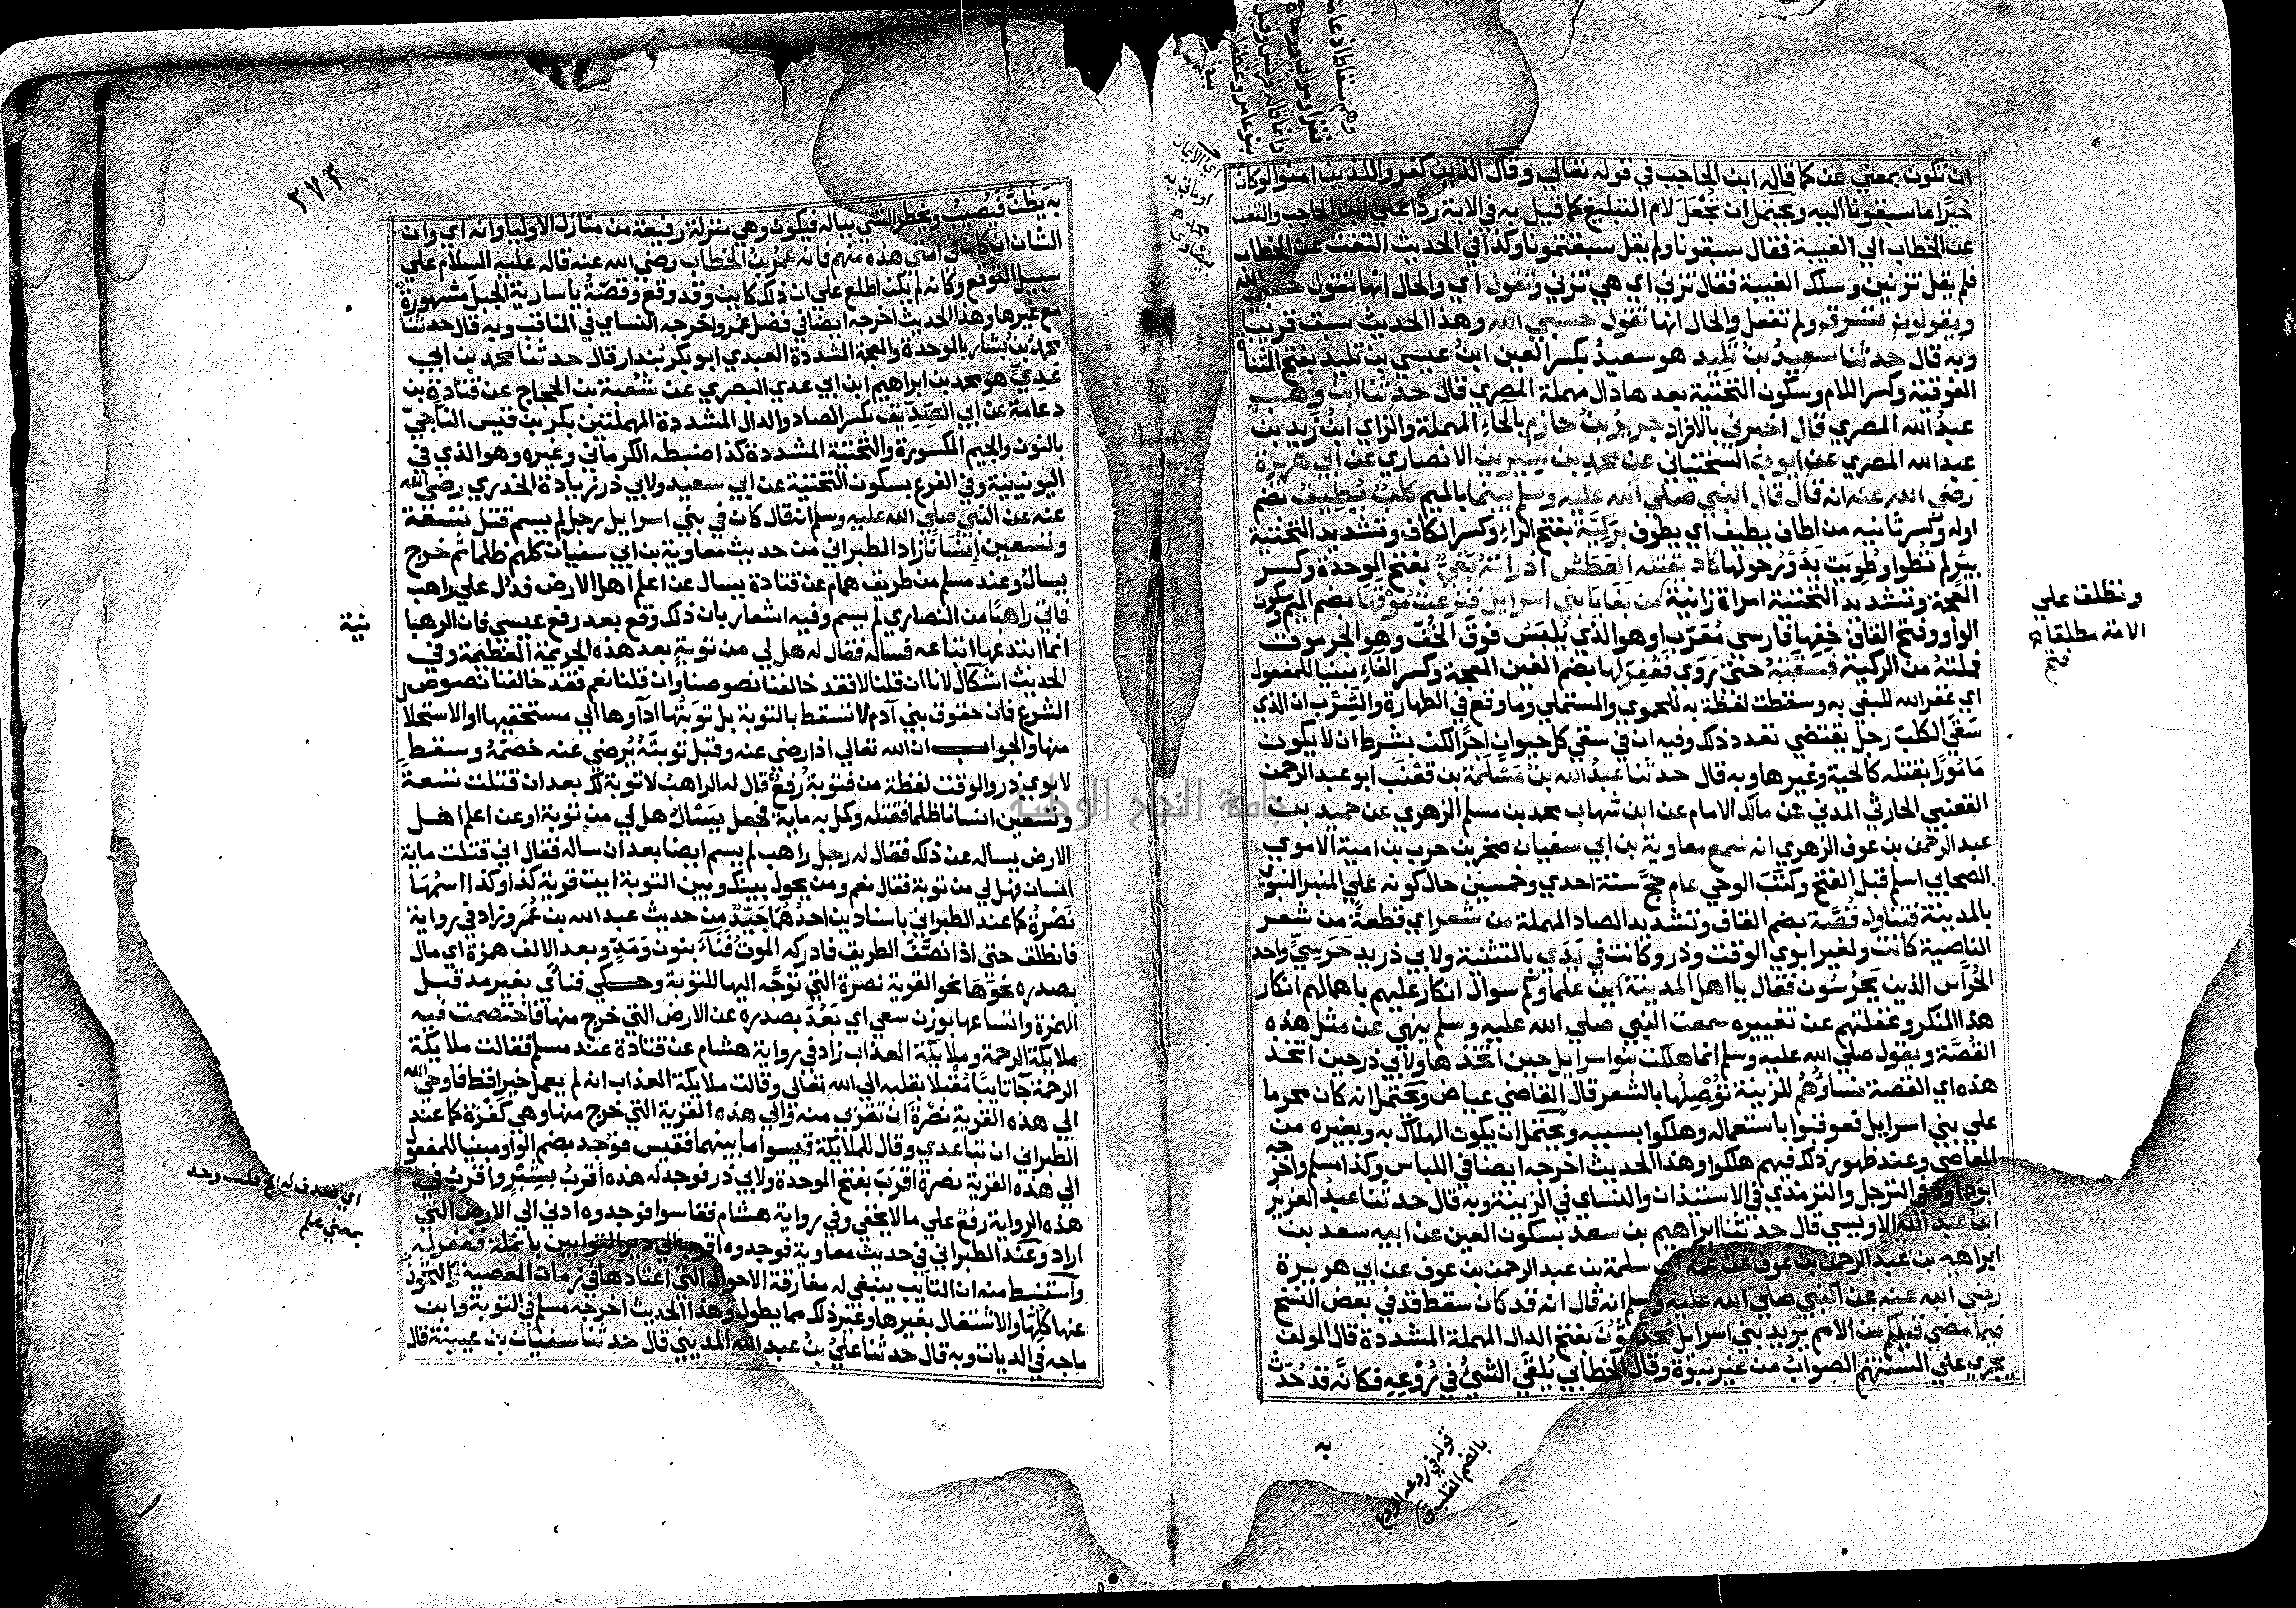 ان تكون بمعني عن كما قاله ابن الحاجب في قوله تعالي وقال الذين كفروا للذين امنوا لو كان
خيرًا ما سبقونا اليه ويحتمل ان تجعل لام التبليغ كما قيل به في الاية ردًا علي ابن الحاجب والتفت
عن الخطاب الي الغيبة فقال سبقونا ولم يقل سبقتمونا وكذا في الحديث التفت عن الخطاب
فلم يقل تزنين وسلك الغيبة فقال تزني اي هي تزني وتقول اي والحال انها تقول حسبي الله
ويقولون تسرق ولم تفعل والحال انها تقول حسبي الله وهذا الحديث سبق قريبا
وبه قال حدثنا سعيد بن تليد هو سعيد بكسر العين ابن عيسي بن تليد بفتح المثناة
الفوقية وكسر اللام وسكون التحتية بعدها دال مهملة المصري قال حدثنا ابن وهب
عبد الله المصري قال اخبرني بالافراد جرير بن حازم بالحاء المهملة والزاي ابن زيد بن
عبد الله المصري عن ايوب السختياني عن محمد بن سيرين الانصاري عن ابي هريرة
رضي الله عنه انه قال قال النبي صلي الله عليه وسلم بينما بالميم كلب يطيف بضم
اوله وكسر ثانيه من اطاف يطيف اي يطوف بركية بفتح الراء وكسر الكاف وتشديد التحتية
بئر لم تطوا وطويت يدور حولها كاد يقتله العطش اذ راته بغي بفتح الموحدة وكسر
المعجمة وتشديد التحتية امراة زانية من بغايا بني اسرايل فنزعت موقها بضم الميم وسكون
الواو وفتح القاف خفها فارسي معرب او هو الذي يلبس فوق الخف وهو الجرموق
فملته من الركية فسقته حتي روي فغفر لها بضم الغين المعجمة وكسر الفاء مبنيا للمفعول
اي غفر الله للبغي به وسقطت لفظة به للحموي والمستملي وما وقع في الطهارة والشرب ان الذي
سقي الكلب رجل يقتضي تعدد ذلك وفيه ان في سقي كل حيوان اجرًا لكن بشرط ان لا يكون
مامورًا بقتله كالحية وغيرها وبه قال حدثنا عبد الله بن مسلمة بن قعنب ابو عبد الرحمن
القعنبي الحارثي المدني عن مالك الامام عن ابن شهاب محمد بن مسلم الزهري عن حميد بن
عبد الرحمن بن عوف الزهري انه سمع معاوية بن ابي سفيان صخر بن حرب بن امية الاموي
الصحابي اسلم قبل الفتح وكتب الوحي عام حج سنة احدي وخمسين حال كونه علي المنبر النبوي
بالمدينة فتناول قصة بضم القاف وتشديد الصاد المهملة من شعر اي قطعة من شعر
الناصية كانت ولغير ابوي الوقت وذر وكانت في يدي بالتثنية ولابي ذر يد حرسي واحد
الحراس الذين يحرسون فقال يا اهل المدينة اين علماوكم سوال انكار عليهم باهمالهم انكار
هذا المنكر وغفلتهم عن تغييره سمعت النبي صلي الله عليه وسلم ينهي عن مثل هذه
القصة ويقول صلي الله عليه وسلم انما هلكت بنوا سرايل حين اتخذها ولابي ذر حين اتخذ
هذه اي القصة نساوهم للزينة توصلها بالشعر قال القاضي عياض ويحتمل انه كان محرما
علي بني اسرايل فعوقبوا باستعماله وهلكوا بسببه ويحتمل ان يكون الهلاك به وبغيره من
المعاصي وعند ظهور ذلك فيهم هلكوا وهذا الحديث اخرجه ايضا في اللباس وكذا مسلم واخرجه
ابو داود في الترجل والترمذي في الاستيذان والنساي في الزينة وبه قال حدثنا عبد العزيز
ابن عبد الله الاويسي قال حدثنا ابراهيم بن سعد بسكون العين عن ابيه سعد بن
ابراهيم بن عبد الرحمن بن عوف عن عمه ابي سلمة بن عبد الرحمن بن عوف عن ابي هريرة
رضي الله عنه عن النبي صلي الله عليه وسلم انه قال انه قد كان سقط قد في بعض النسخ
فيما مضي قبلكم من الامم يريد بني اسرايل محدثون بفتح الدال المهملة المشددة قال المولف
يجري علي السنتهم الصواب من غير نبوة وقال الخطابي يلقي الشي في روعه فكانه قد حدث
به
وتطلق علي
الامة مطلقا
قوله في روعه الروع
بالضم القلب
اي الايمان
٢٧٣
به يظن فيصيب ويخطر الشي بباله فيكون وهي منزلة رفيعة من منازل الاوليا وانه اي وان
الشان ان كان في امتي هذه منهم فانه عمر بن الخطاب رضي الله عنه قاله عليه السلام علي
سبيل التوقع وكانه لم يكن اطلع علي ان ذلك كاين وقد وقع وقصة يا سارية الجبل مشهورة
مع غيرها وهذا الحديث اخرجه ايضا في فضل عمر واخرجه النساي في المناقب وبه قال حدثنا
محمد بن بشار بالموحدة والمعجمة المشددة العبدي ابو بكر بندار قال حدثنا محمد بن ابي
عدي هو محمد بن ابراهيم ابن ابي عدي البصري عن شعبة بن الحجاج عن قتادة بن
دعامة عن ابي الصديق بكسر الصاد والدال المشددة المهملتين بكر بن قيس الناجي
بالنون والجيم المكسورة والتحتية المشددة كذا ضبطه الكرماني وغيره وهو الذي في
اليونينية وفي الفرع بسكون التحتية عن ابي سعيد ولابي ذر زيادة الخدري رضي الله
عنه عن النبي صلي الله عليه وسلم انه قال كان في بني اسرايل رجل لم يسم قتل تسعة
وتسعين انسانا زاد الطبراني من حديث معاوية بن ابي سفيان كلهم ظلما ثم خرج
يسال وعند مسلم من طريق همام عن قتادة يسال عن اعلم اهل الارض فدل علي راهب
فاتي راهبا من النصاري لم يسم وفيه اشعار بان ذلك وقع بعد رفع عيسي فان الرهبا
نية
انما ابتدعها اتباعه فساله فقال له هل لي من توبة بعد هذه الجريمة العظيمة وفي
الحديث اشكال لانا ان قلنا لا فقد خالفنا نصوصنا وان قلنا نعم فقد خالفنا نصوص
الشرع فان حقوق بني آدم لا تسقط بالتوبة بل توبتها اداوها الي مستحقيها او الاستحلال
منها والجواب ان الله تعالي اذا رضي عنه وقبل توبته يرضي عنه خصمه وسقط
لابوي ذر والوقت لفظة من فتوبة رفع قال له الراهب لا توبة لك بعد ان قتلت تسعة
وتسعين انسانا ظلما فقتله وكمل به ماية فجعل يسال هل لي من توبة او عن اعلم اهل
الارض يساله عن ذلك فقال له رجل راهب لم يسم ايضا بعد ان ساله فقال اني قتلت ماية
انسان فهل لي من توبة فقال نعم ومن يحول بينك وبين التوبة ايت قرية كذا وكذا اسمها
نصرة كما عند الطبراني باسنادين احدهما جيد من حديث عبد الله بن عمرو وزاد في رواية
فانطلق حتي اذا نصف الطريق فادركه الموت فناء بنون ومد وبعد الالف همزة اي مال
بصدره نحوها نحو القرية نصرة التي توجه اليها للتوبة وحكي فناي بغير مد قبل
الهمزة واشباعها بوزن سعي اي بعد بصدره عن الارض التي خرج منها فاختصمت فيه
ملايكة الرحمة وملايكة العذاب زاد في رواية هشام عن قتادة عند مسلم فقالت ملايكة
الرحمة جا تايبا مقبلا بقلبه الي الله تعالي وقالت ملايكة العذاب انه لم يعمل خيرا قط فاوحي الله
الي هذه القرية نصرة ان تقربي منه والي هذه القرية التي خرج منها وهي كفرة كما عند
الطبراني ان تباعدي وقال للملايكة قيسوا ما بينهما فقيس فوجد بضم الواو مبنيا للمفعول
الي هذه القرية نصرة اقرب بفتح الموحدة ولابي ذر فوجد له هذه اقرب بشبر واقرب في
هذه الرواية رفع علي ما لا يخفي وفي رواية هشام فقاسوا فوجدوه ادني الي الارض التي
اراد وعند الطبراني في حديث معاوية فوجدوه اقرب الي دير التوابين بانملة فغفر له
واستنبط منه ان التايب ينبغي له مفارقة الاحوال التي اعتادها في زمان المعصية والتحول
عنها كلها والاشتغال بغيرها وغير ذلك مما يطول وهذا الحديث اخرجه مسلم في التوبة وابن
ماجه في الديات وبه قال حدثنا علي بن عبد الله المديني قال حدثنا سفيان بن عيينة قال
بمعني علم